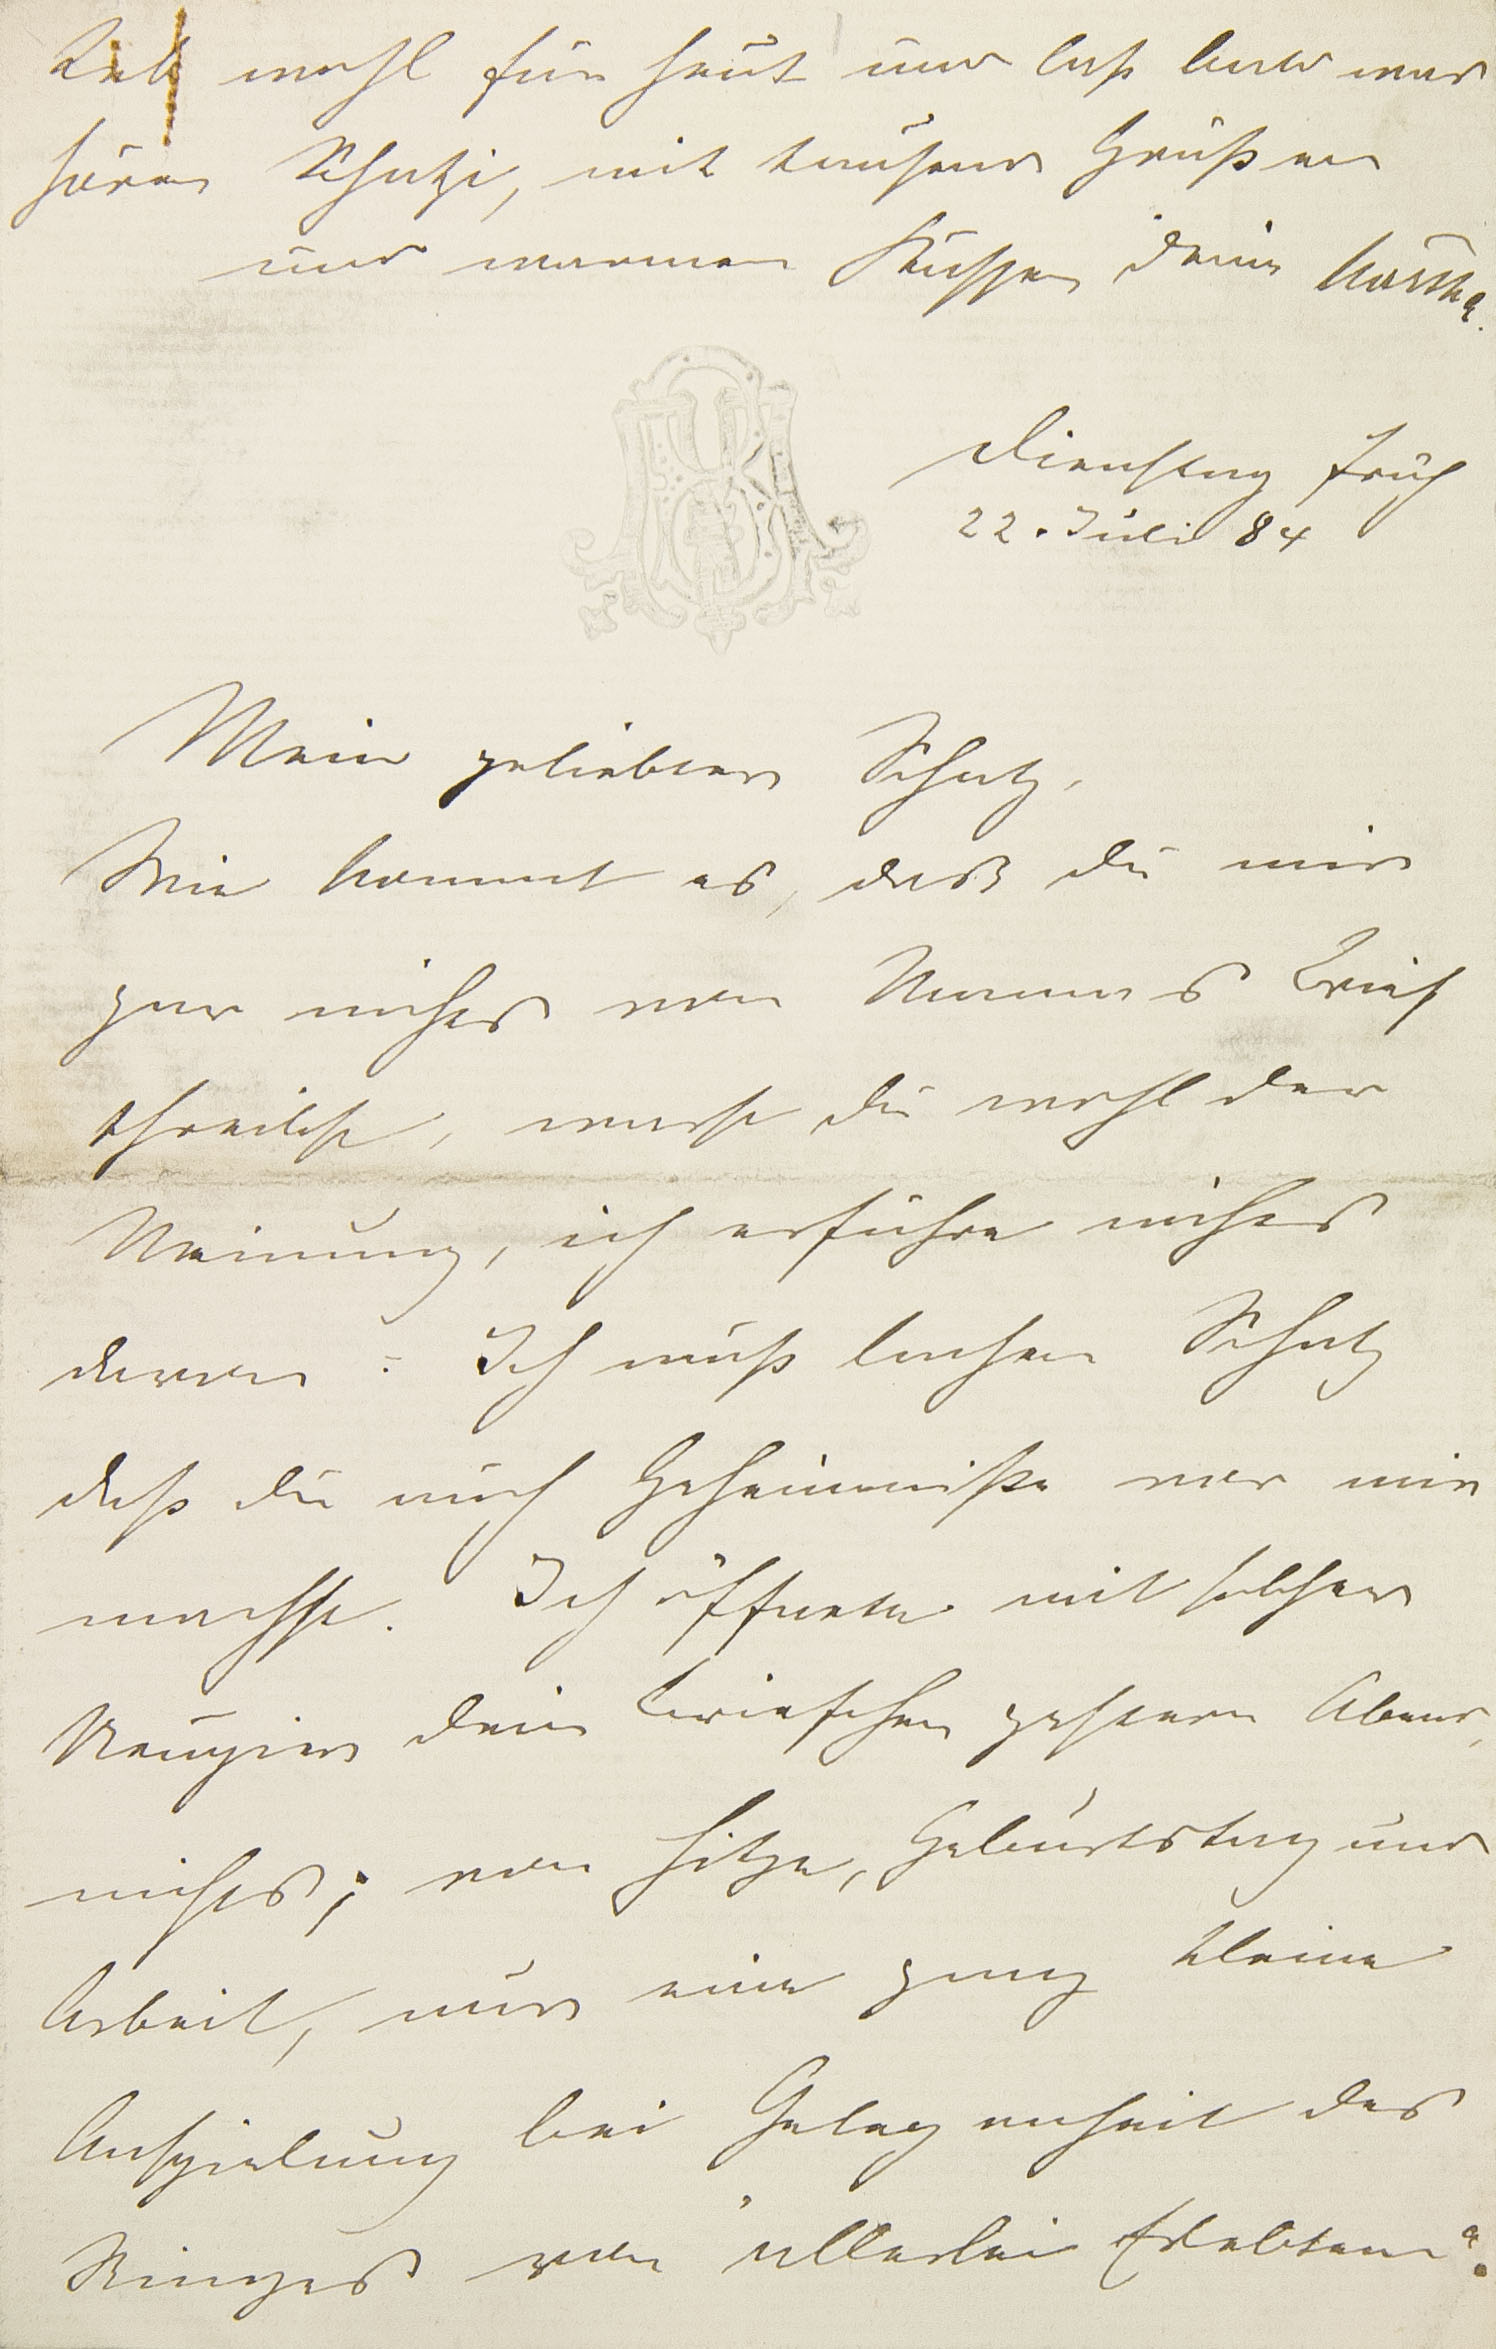 Leb wohl für heut und laß bald was
hören Schatzi, mit tausend Grüßen
und warmen Küssen deine
Dienstag früh
22. Juli 84
Mein geliebter Schatz,
Wie kommt es, daß du mir
gar nichts von Mamas Brief
schreibst, warst du wohl der
Meinung, ich erführe nichts
davon? Ich muß lachen Schatz
daß du auch Geheimniße vor mir
machst. Ich öffnete mit solcher
Neugier dein Briefchen gestern Abend,
nichts; von Hitze, Geburtstag und
Arbeit, nur eine ganz kleine
Anspielung bei Gelegenheit des
Ringes von "allerlei Erlebtem".